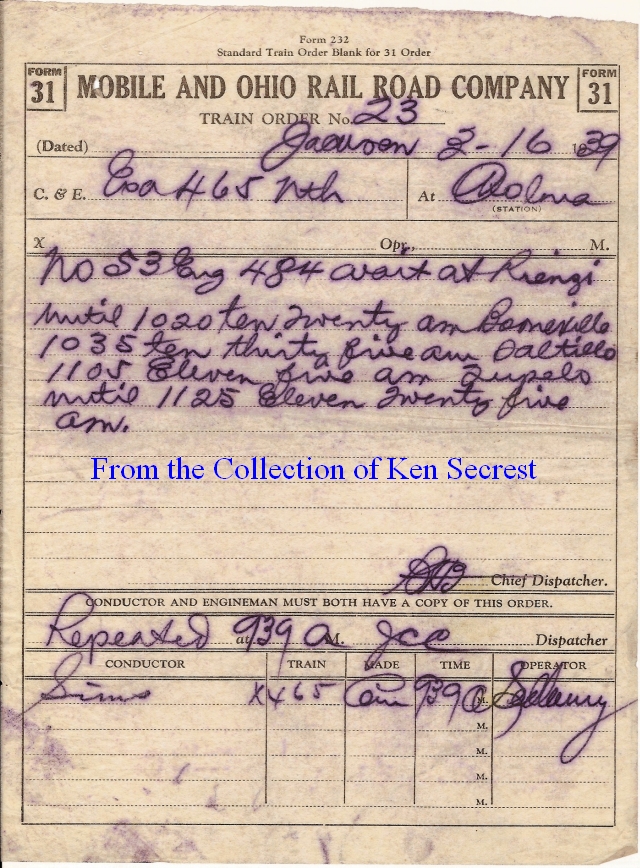 Form 232
Standard Train Order Blank for 31 Order
FORM 31 MOBILE AND OHIO RAIL ROAD COMPANY FORM 31
TRAIN ORDER No. 23
(Dated) 3-16 1939
C. & E. Exa 465 Nth At
(STATION)
X Opr., M.
No 53 Eng 484 wait at Rienzi
until 1020 ten twenty am Booneville
1035 ten thirty five am Saltillo
1105 Eleven five am Tupelo
until 1125 Eleven twenty five
am.
From the Collection of Ken Secrest
Chief Dispatcher.
CONDUCTOR AND ENGINEMAN MUST BOTH HAVE A COPY OF THIS ORDER.
Repeated at 939 A M. JCC Dispatcher
CONDUCTOR TRAIN MADE TIME OPERATOR
Sims X465 Com 939 A M.
M.
M.
M.
M.